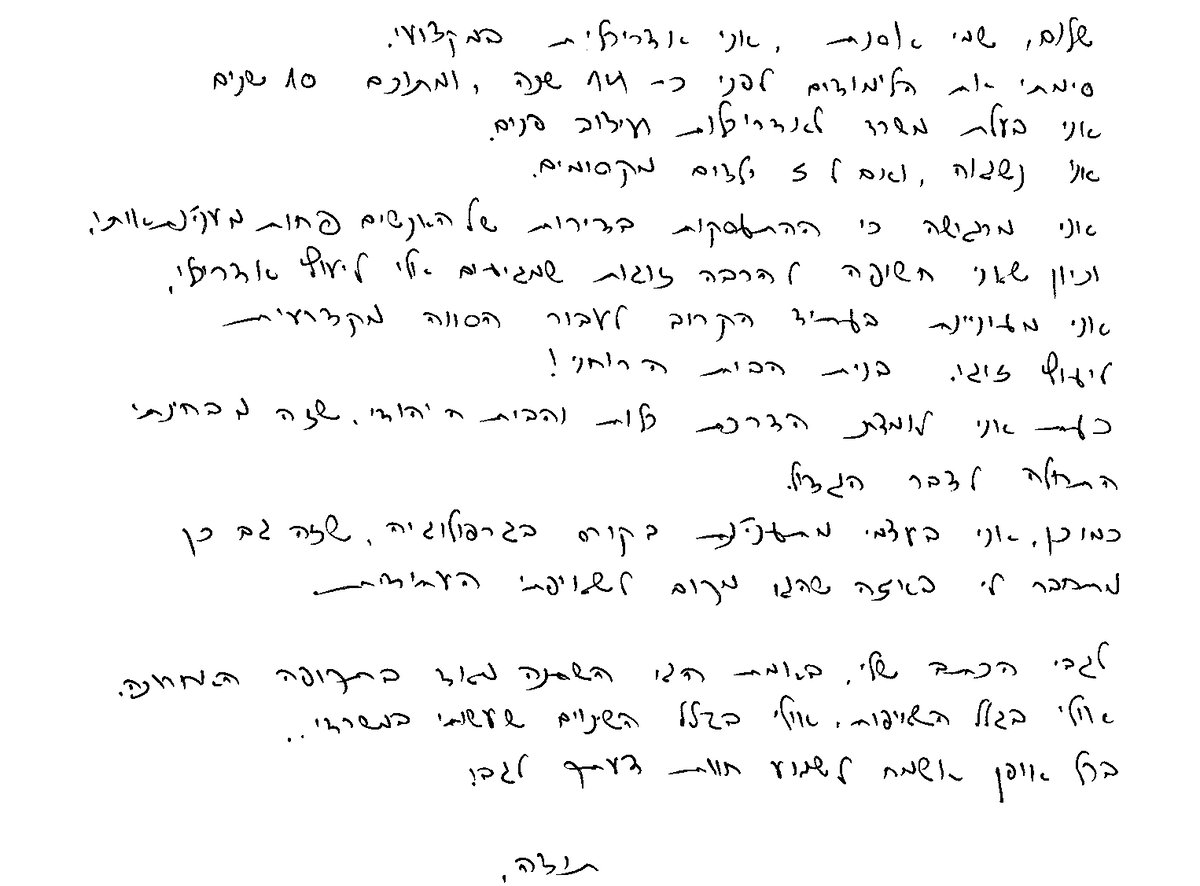 שלום, שמי אוסנת, אני אדריכלית במקצועי.
סימתי את הלימודים לפני כ- 14 שנה, ומתוכם 10 שנים
אני בעלת משרד לאדריכלות ועיצוב פנים.
אני נשואה, ואם ל 5 ילדים מקסימים.
אני מרגישה כי ההתעסקות בדירות של האנשים פחות מענינת אותי,
וכיון שאני חשיפה להרבה זוגות שמגיעים אלי ליעוץ אדריכלי,
אני מעוניינת בעתיד הקרוב לעבור הסווה מקצועית
ליעוץ זוגי. בנית הבית הרוחני!
כעת אני לומדת הדרכת כלות והבית היהודי, שזה מבחינתי
התחלה לדבר הגדול.
כמו כן, אני בעצמי מתענינת בקורס בגרפולוגיה, שזה גם כן
מתחבר לי באיזה שהוא מקום לשאיפתי העתידית.
לגבי הכתב שלי, באמת הוא השתנה מאוד בתקופה האחרונה,
אולי בגלל השאיפות, אולי בגלל השינוים שעשתי במשרד..
בכל אופן אשמח לשמוע חוות דעתך לגבו.
תודה,